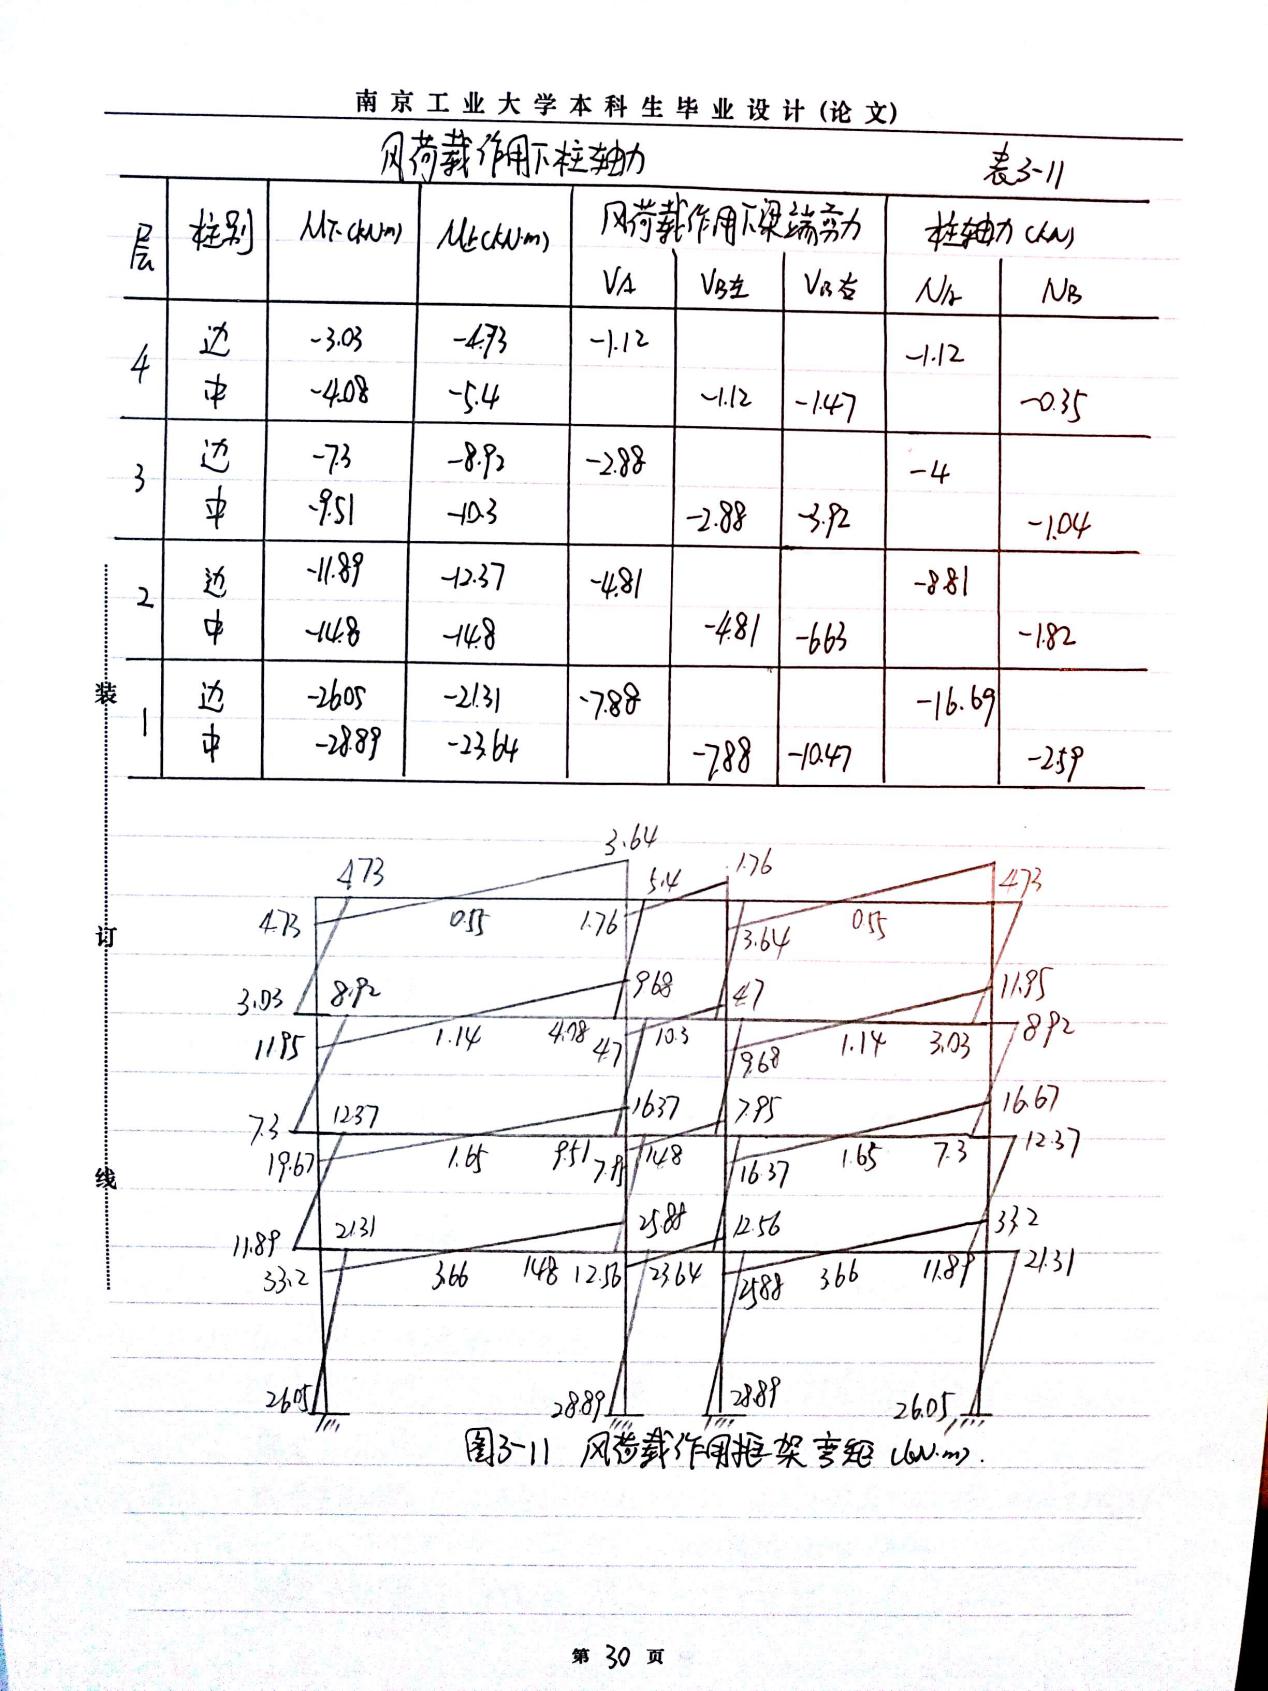 南京工业大学本科生毕业设计(论文)
风荷载作用下柱轴力 表3-11
层 柱别 M下(kN·m) M上(kN·m) 风荷载作用下梁端剪力 柱轴力(kN)
VA VB左 VB右 NA NB
4 边 -3.03 -4.73 -1.12 -1.12
中 -4.08 -5.4 -1.12 -1.47 -0.35
3 边 -7.3 -8.92 -2.88 -4
中 -9.51 -10.3 -2.88 -3.92 -1.04
2 边 -11.89 -12.37 -4.81 -8.81
中 -14.8 -14.8 -4.81 -6.63 -1.82
装
1 边 -26.05 -21.31 -7.88 -16.69
中 -28.89 -23.64 -7.88 -10.47 -2.59
3.64
4.73 5.4 1.76 4.73
订
4.73 0.55 1.76 3.64 0.55
3.03 8.92 9.68 4.7 11.95
11.95 1.14 4.08 4.7 10.3 9.68 1.14 3.03 8.92
7.3 12.37 16.37 7.95 16.67
线
19.67 1.65 9.51 7.95 14.8 16.37 1.65 7.3 12.37
11.89 21.31 25.88 12.56 33.2
33.2 3.66 14.8 12.56 23.64 25.88 3.66 11.89 21.31
26.05 28.89 28.89 26.05
图3-11 风荷载作用框架弯矩(kN·m).
第 30 页